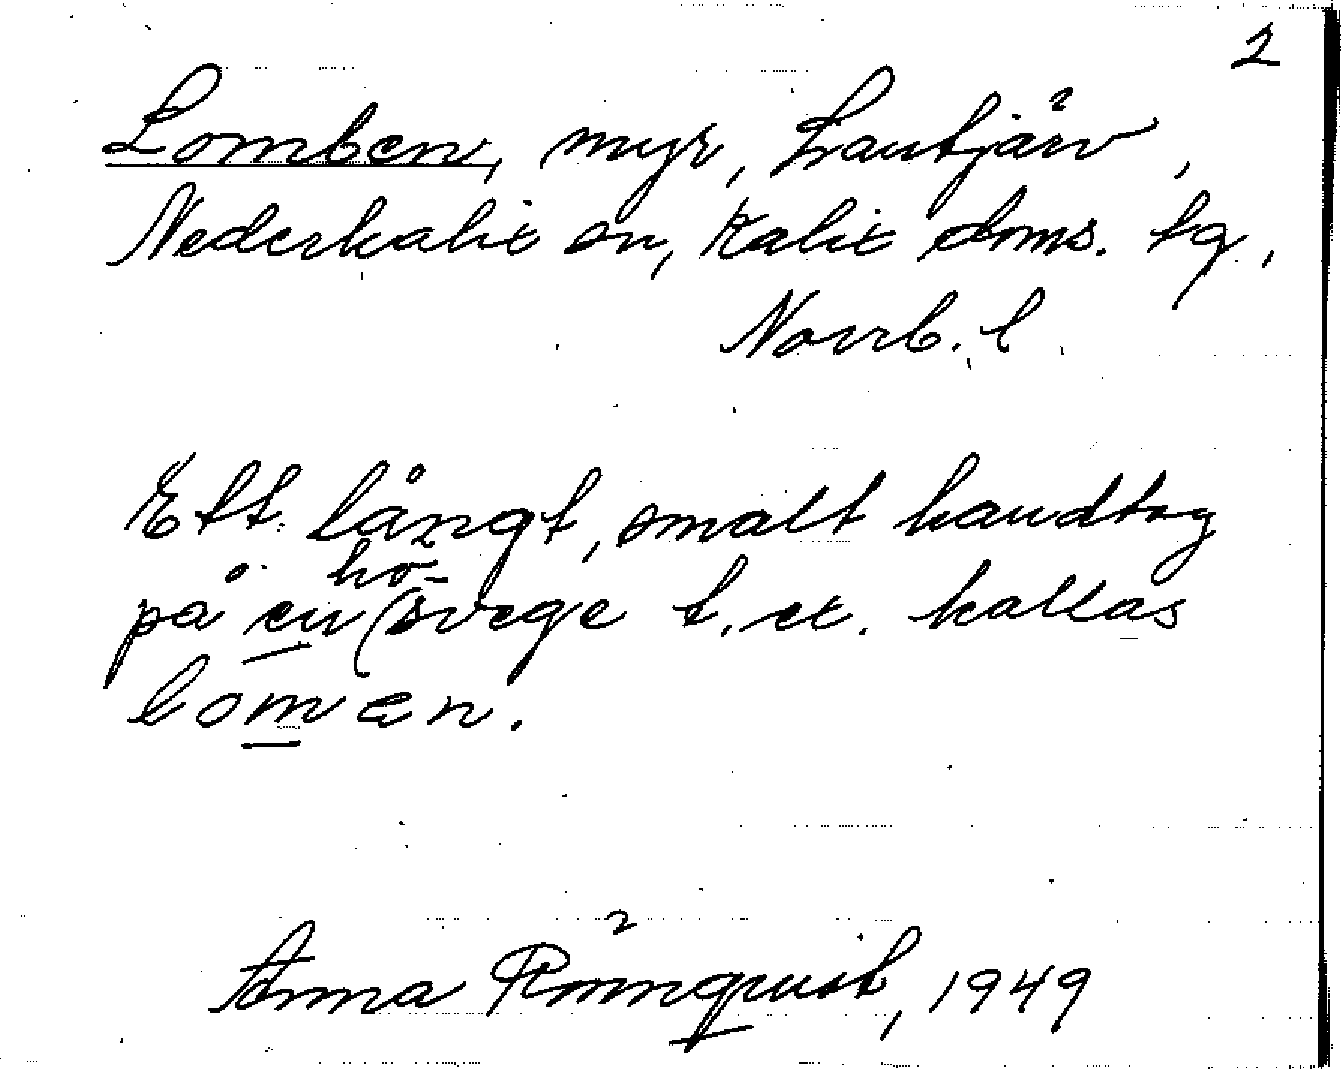 2
Lomben, myr, Lantjärv,
Nederkalix sn, Kalix doms. tg,
Norrb. l.
Ett långt, smalt handtag
hö-
på en (svege t. ex. kallas
loman.
Anna Rönnquist, 1949